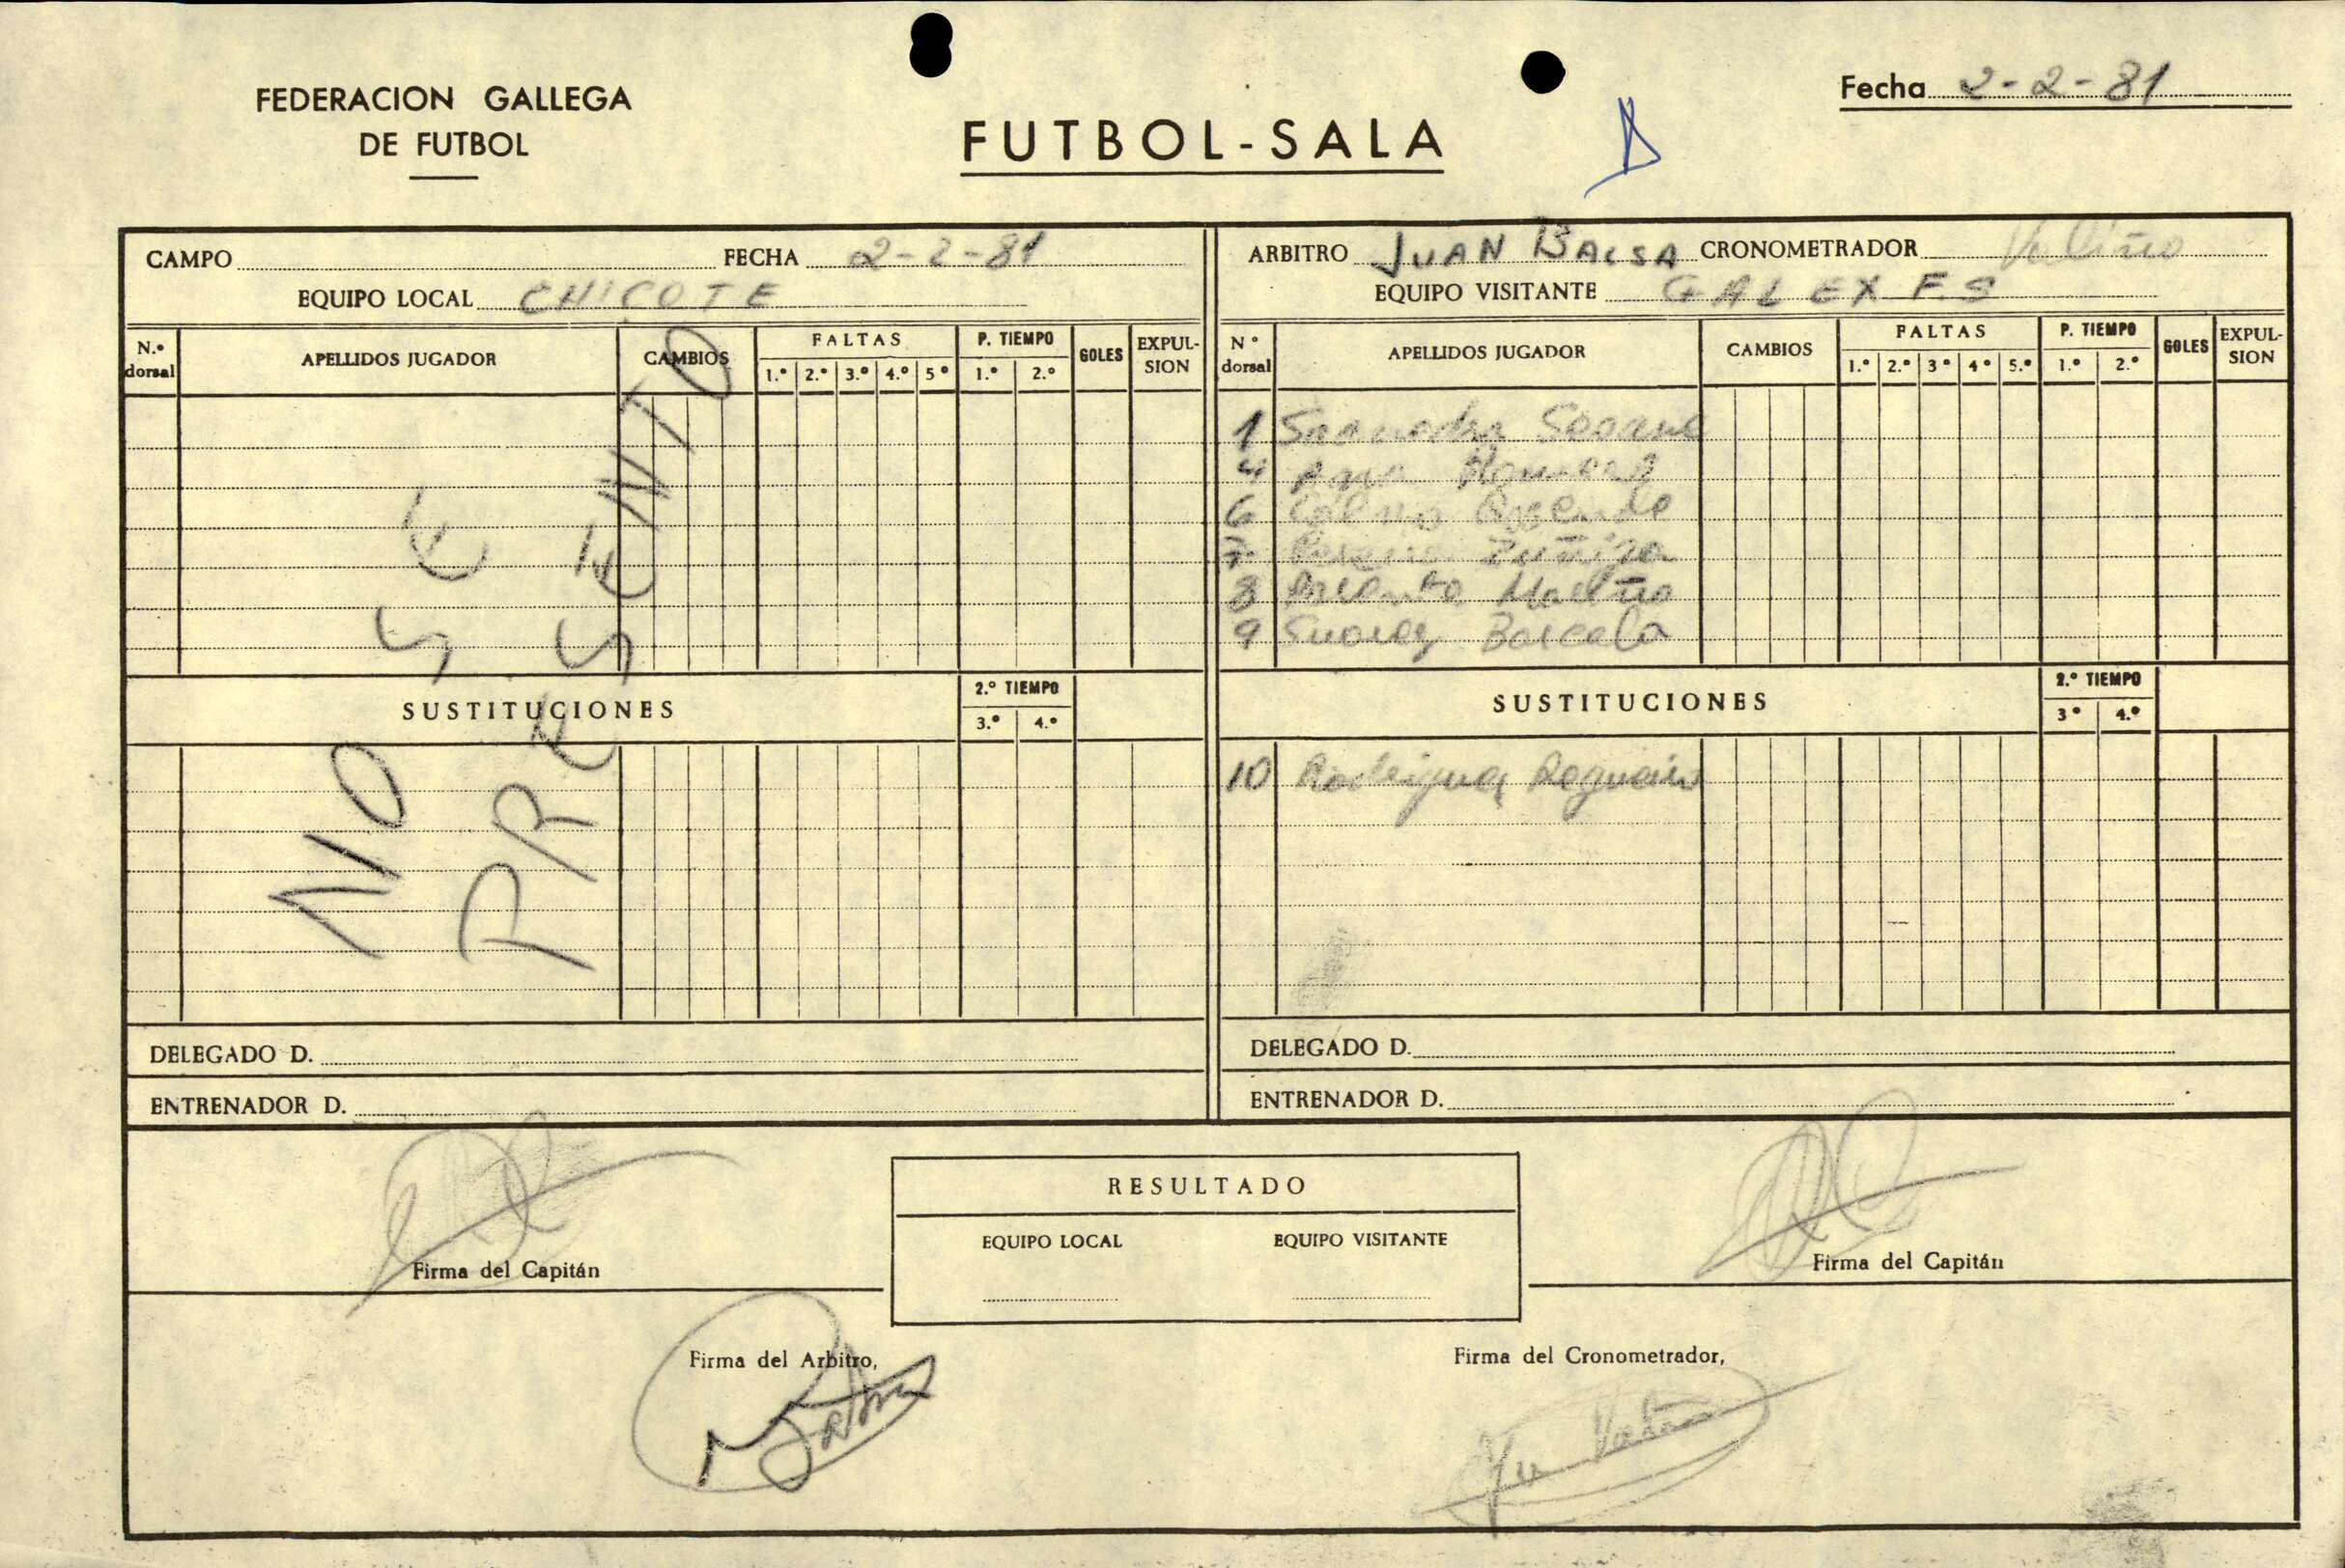 FEDERACION GALLEGA
DE FUTBOL
FUTBOL-SALA
Fecha 2-2-81
CAMPO FECHA 2-2-81
EQUIPO LOCAL CHICOTE
ARBITRO JUAN BALSA CRONOMETRADOR Valiño
EQUIPO VISITANTE GALEX F.S
N.º dorsal APELLIDOS JUGADOR CAMBIOS FALTAS 1.º 2.º 3.º 4.º 5º P. TIEMPO 1.º 2.º GOLES EXPUL-SION
NO SE
PRESENTO
SUSTITUCIONES 2.º TIEMPO 3.º 4.º
DELEGADO D.
ENTRENADOR D.
Nº dorsal APELLIDOS JUGADOR CAMBIOS FALTAS 1.º 2.º 3º 4º 5.º P. TIEMPO 1.º 2.º GOLES EXPUL-SION
1 Saavedra Seoane
4
6 Rosende
7 Zuñiga
8 Mariño
9 Suarez Barcala
SUSTITUCIONES 2.º TIEMPO 3º 4.º
10 Rodriguez Regueiro
DELEGADO D.
ENTRENADOR D.
Firma del Capitán
RESULTADO
EQUIPO LOCAL EQUIPO VISITANTE
Firma del Capitán
Firma del Arbitro,
Firma del Cronometrador,